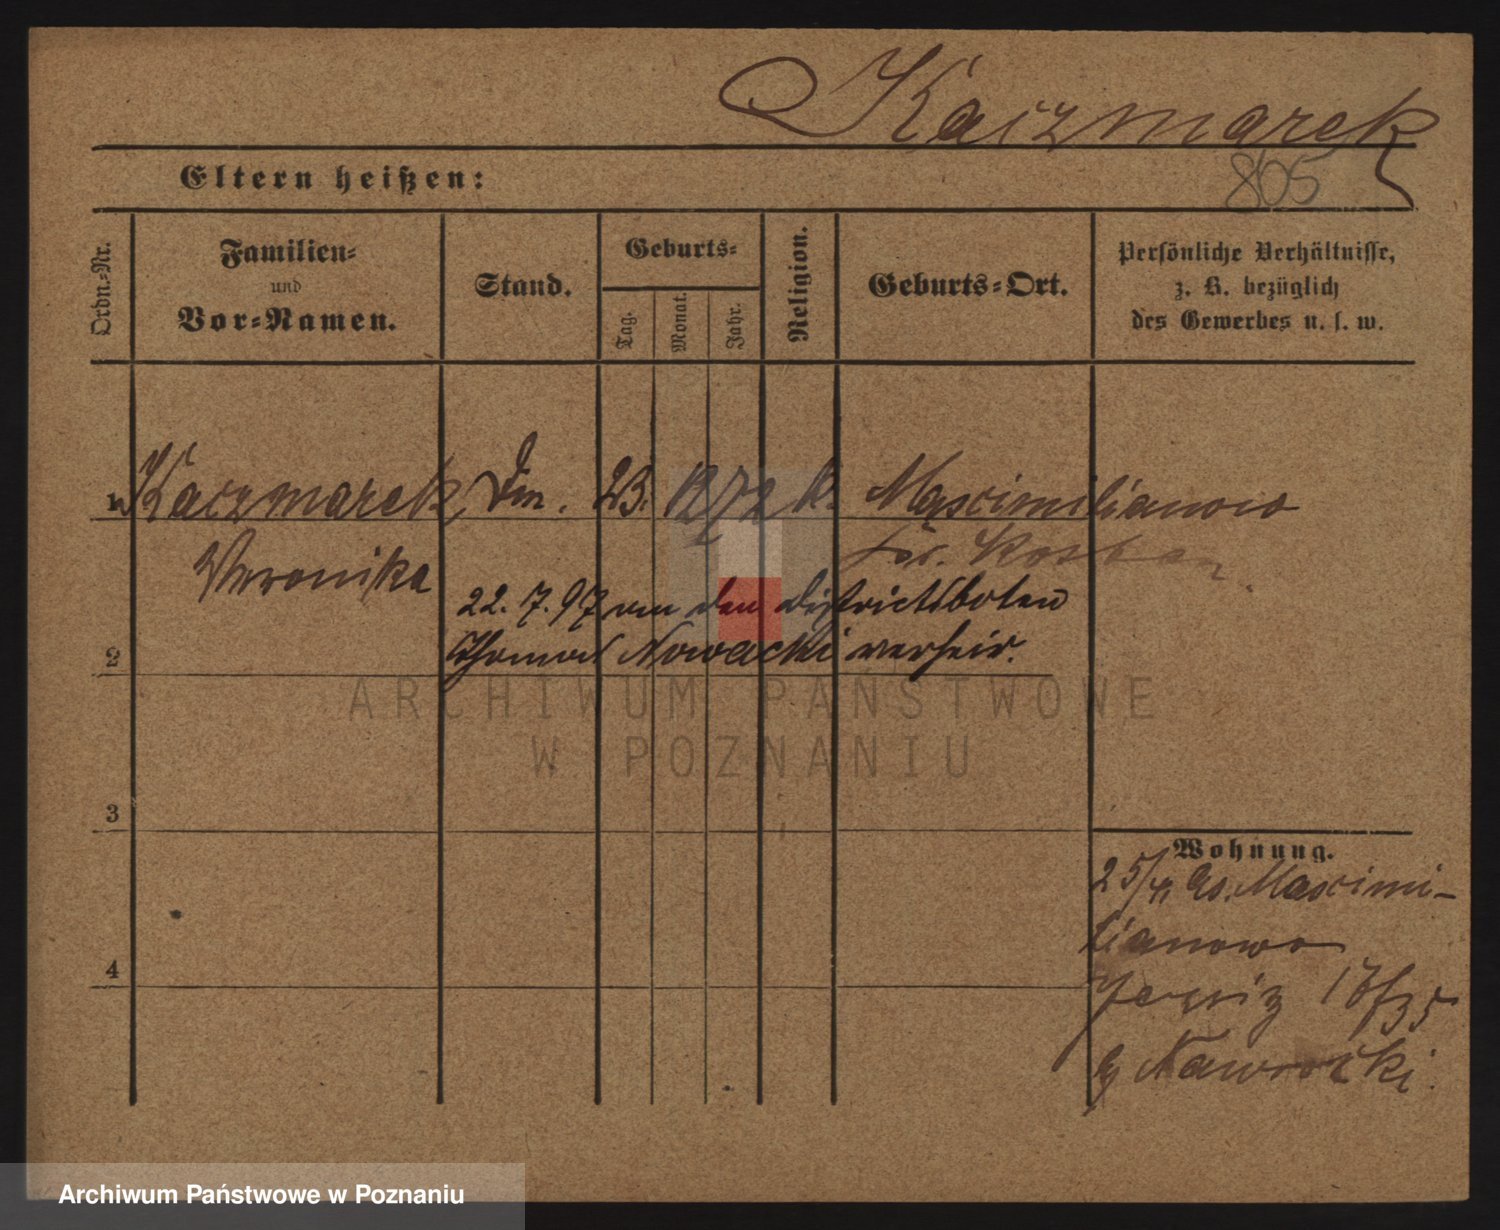 Kaczmarek
Eltern heißen:
805
Ordn.-Nr.
Familien-
und
Vor-Namen.
Stand.
Geburts-
Tag.
Monat.
Jahr.
Religion.
Geburts-Ort.
Persönliche Verhältnisse,
z. B. bezüglich
des Gewerbes u. s. w.
1 Kaczmarek, Dm. 23. 12 72 k. Maximilianowo
Veronika
Kr. Kosten
22. 7. 97 den Districtsboten
2 Thomas Nowacki verheir.
ARCHIWUM PAŃSTWOWE
W POZNANIU
3
Wohnung.
25/ Maximi-
lianowo
4
Jersitz
b Nawrocki.
Archiwum Państwowe w Poznaniu